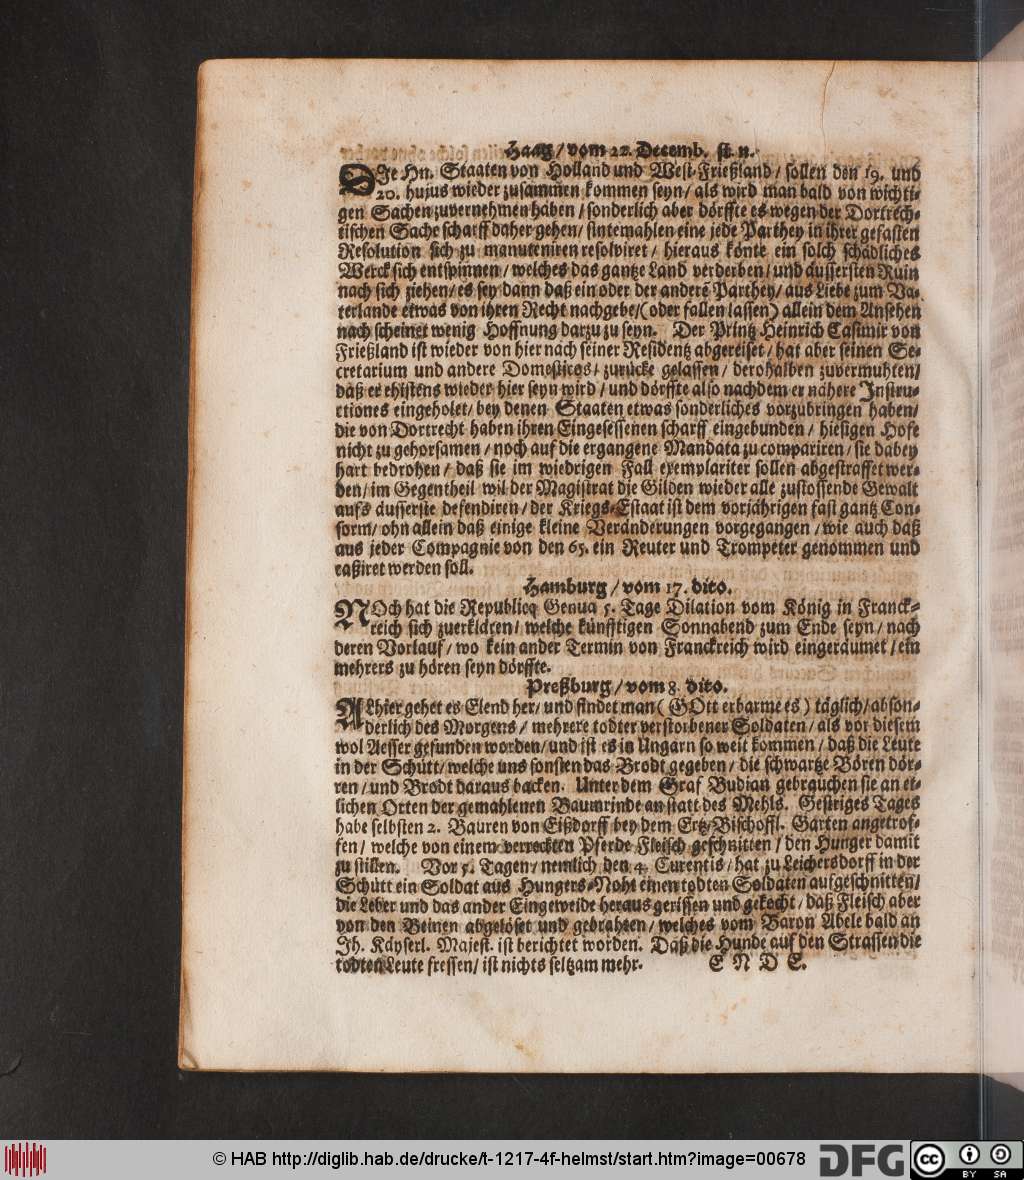 Haag / vom 22. Decemb. st. n.
DJe Hn. Staaten von Holland und West-Frießland / sollen den 19. und
20. hujus wieder zusammen kommen seyn / als wird man bald von wichti-
gen Sachen zuvernehmen haben / sonderlich aber dörffte es wegen der Dortrech-
tischen Sache scharff daher gehen / sintemahlen eine jede Parthey in ihrer gefasten
Resolution sich zu manuteniren resolviret / hieraus könte ein solch schädliches
Werck sich entspinnen / welches das gantze Land verderben / und äussersten Ruin
nach sich ziehen / es sey dann daß ein oder der anderē Parthey / aus Liebe zum Va-
terlande etwas von ihren Recht nachgebe / (oder fallen lassen) allein dem Ansehen
nach scheinet wenig Hoffnung darzu zu seyn. Der Printz Heinrich Casimir von
Frießland ist wieder von hier nach seiner Residentz abgereiset / hat aber seinen Se-
cretarium und andere Domesticos / zurücke gelassen / derohalben zuvermuhten /
daß er ehistens wieder hier seyn wird / und dörffte also nachdem er nähere Jnstru-
ctiones eingeholet / bey denen Staaten etwas sonderliches vorzubringen haben /
die von Dortrecht haben ihren Eingesessenen scharff eingebunden / hiesigen Hofe
nicht zu gehorsamen / noch auf die ergangene Mandata zu compariren / sie dabey
hart bedrohen / daß sie im wiedrigen Fall exemplariter sollen abgestraffet wer-
den / im Gegentheil wil der Magistrat die Gilden wieder alle zustossende Gewalt
aufs äusserste defendiren / der Kriegs-Estaat ist dem vorjährigen fast gantz Con-
form / ohn allein daß einige kleine Veränderungen vorgegangen / wie auch daß
aus jeder Compagnie von den 65. ein Reuter und Trompeter genommen und
caßiret werden soll.
Hamburg / vom 17. dito.
NOch hat die Republicq Genua 5. Tage Dilation vom König in Franck-
reich sich zuerklären / welche künfftigen Sonnabend zum Ende seyn / nach
deren Vorlauf / wo kein ander Termin von Franckreich wird eingeräumet / ein
mehrers zu hören seyn dörffte.
Preßburg / vom 8. dito.
ALhier gehet es Elend her / und findet man (GOtt erbarme es) täglich / abson-
derlich des Morgens / mehrere todter verstorbener Soldaten / als vor diesem
wol Aesser gefunden worden / und ist es in Ungarn so weit kommen / daß die Leute
in der Schütt / welche uns sonsten das Brodt gegeben / die schwartze Bören dör-
ren / und Brodt daraus backen. Unter dem Graf Budian gebrauchen sie an et-
lichen Orten der gemahlenen Baumrinde an statt des Mehls. Gestriges Tages
habe selbsten 2. Bauren von Eißdorff bey dem Ertz-Bischoffl. Garten angetrof-
fen / welche von einem verreckten Pferde Fleisch geschnitten / den Hunger damit
zu stillen. Vor 5. Tagen / nemlich den 4. Curentis / hat zu Leichersdorff in der
Schütt ein Soldat aus Hungers-Noht einen todten Soldaten aufgeschnitten /
die Leber und das ander Eingeweide heraus gerissen und gekocht / daß Fleisch aber
von den Beinen abgelöset und gebrahten / welches vom Baron Abele bald an
Jh. Käyserl. Majest. ist berichtet worden. Daß die Hunde auf den Strassen die
todten Leute fressen / ist nichts seltzam mehr. E N D E.
© HAB http://diglib.hab.de/drucke/t-1217-4f-helmst/start.htm?image=00678
DFG
cc BY SA